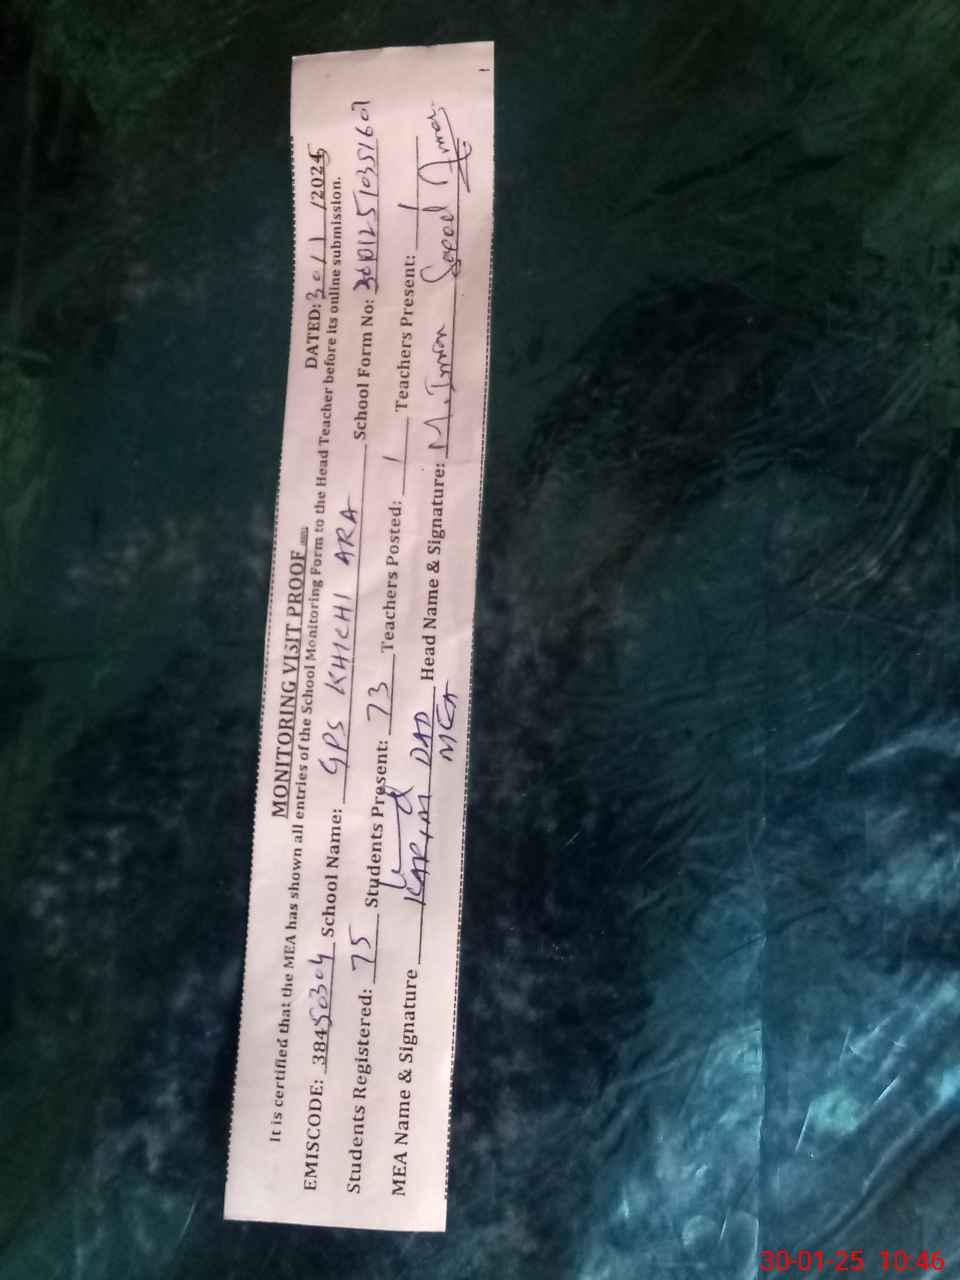 MONITORING VISIT PROOF
DATED: 30/1/2025
It is certified that the MEA has shown all entries of the School Monitoring Form to the Head Teacher before its online submission.
EMISCODE: 38450304 School Name: GPS KHICHI ARA School Form No:
Students Registered: 75 Students Present: 73 Teachers Posted: 1 Teachers Present: 1
MEA Name & Signature KARIM DAD Head Name & Signature: M. Imran Saeed
MEA
30-01-25 10:46